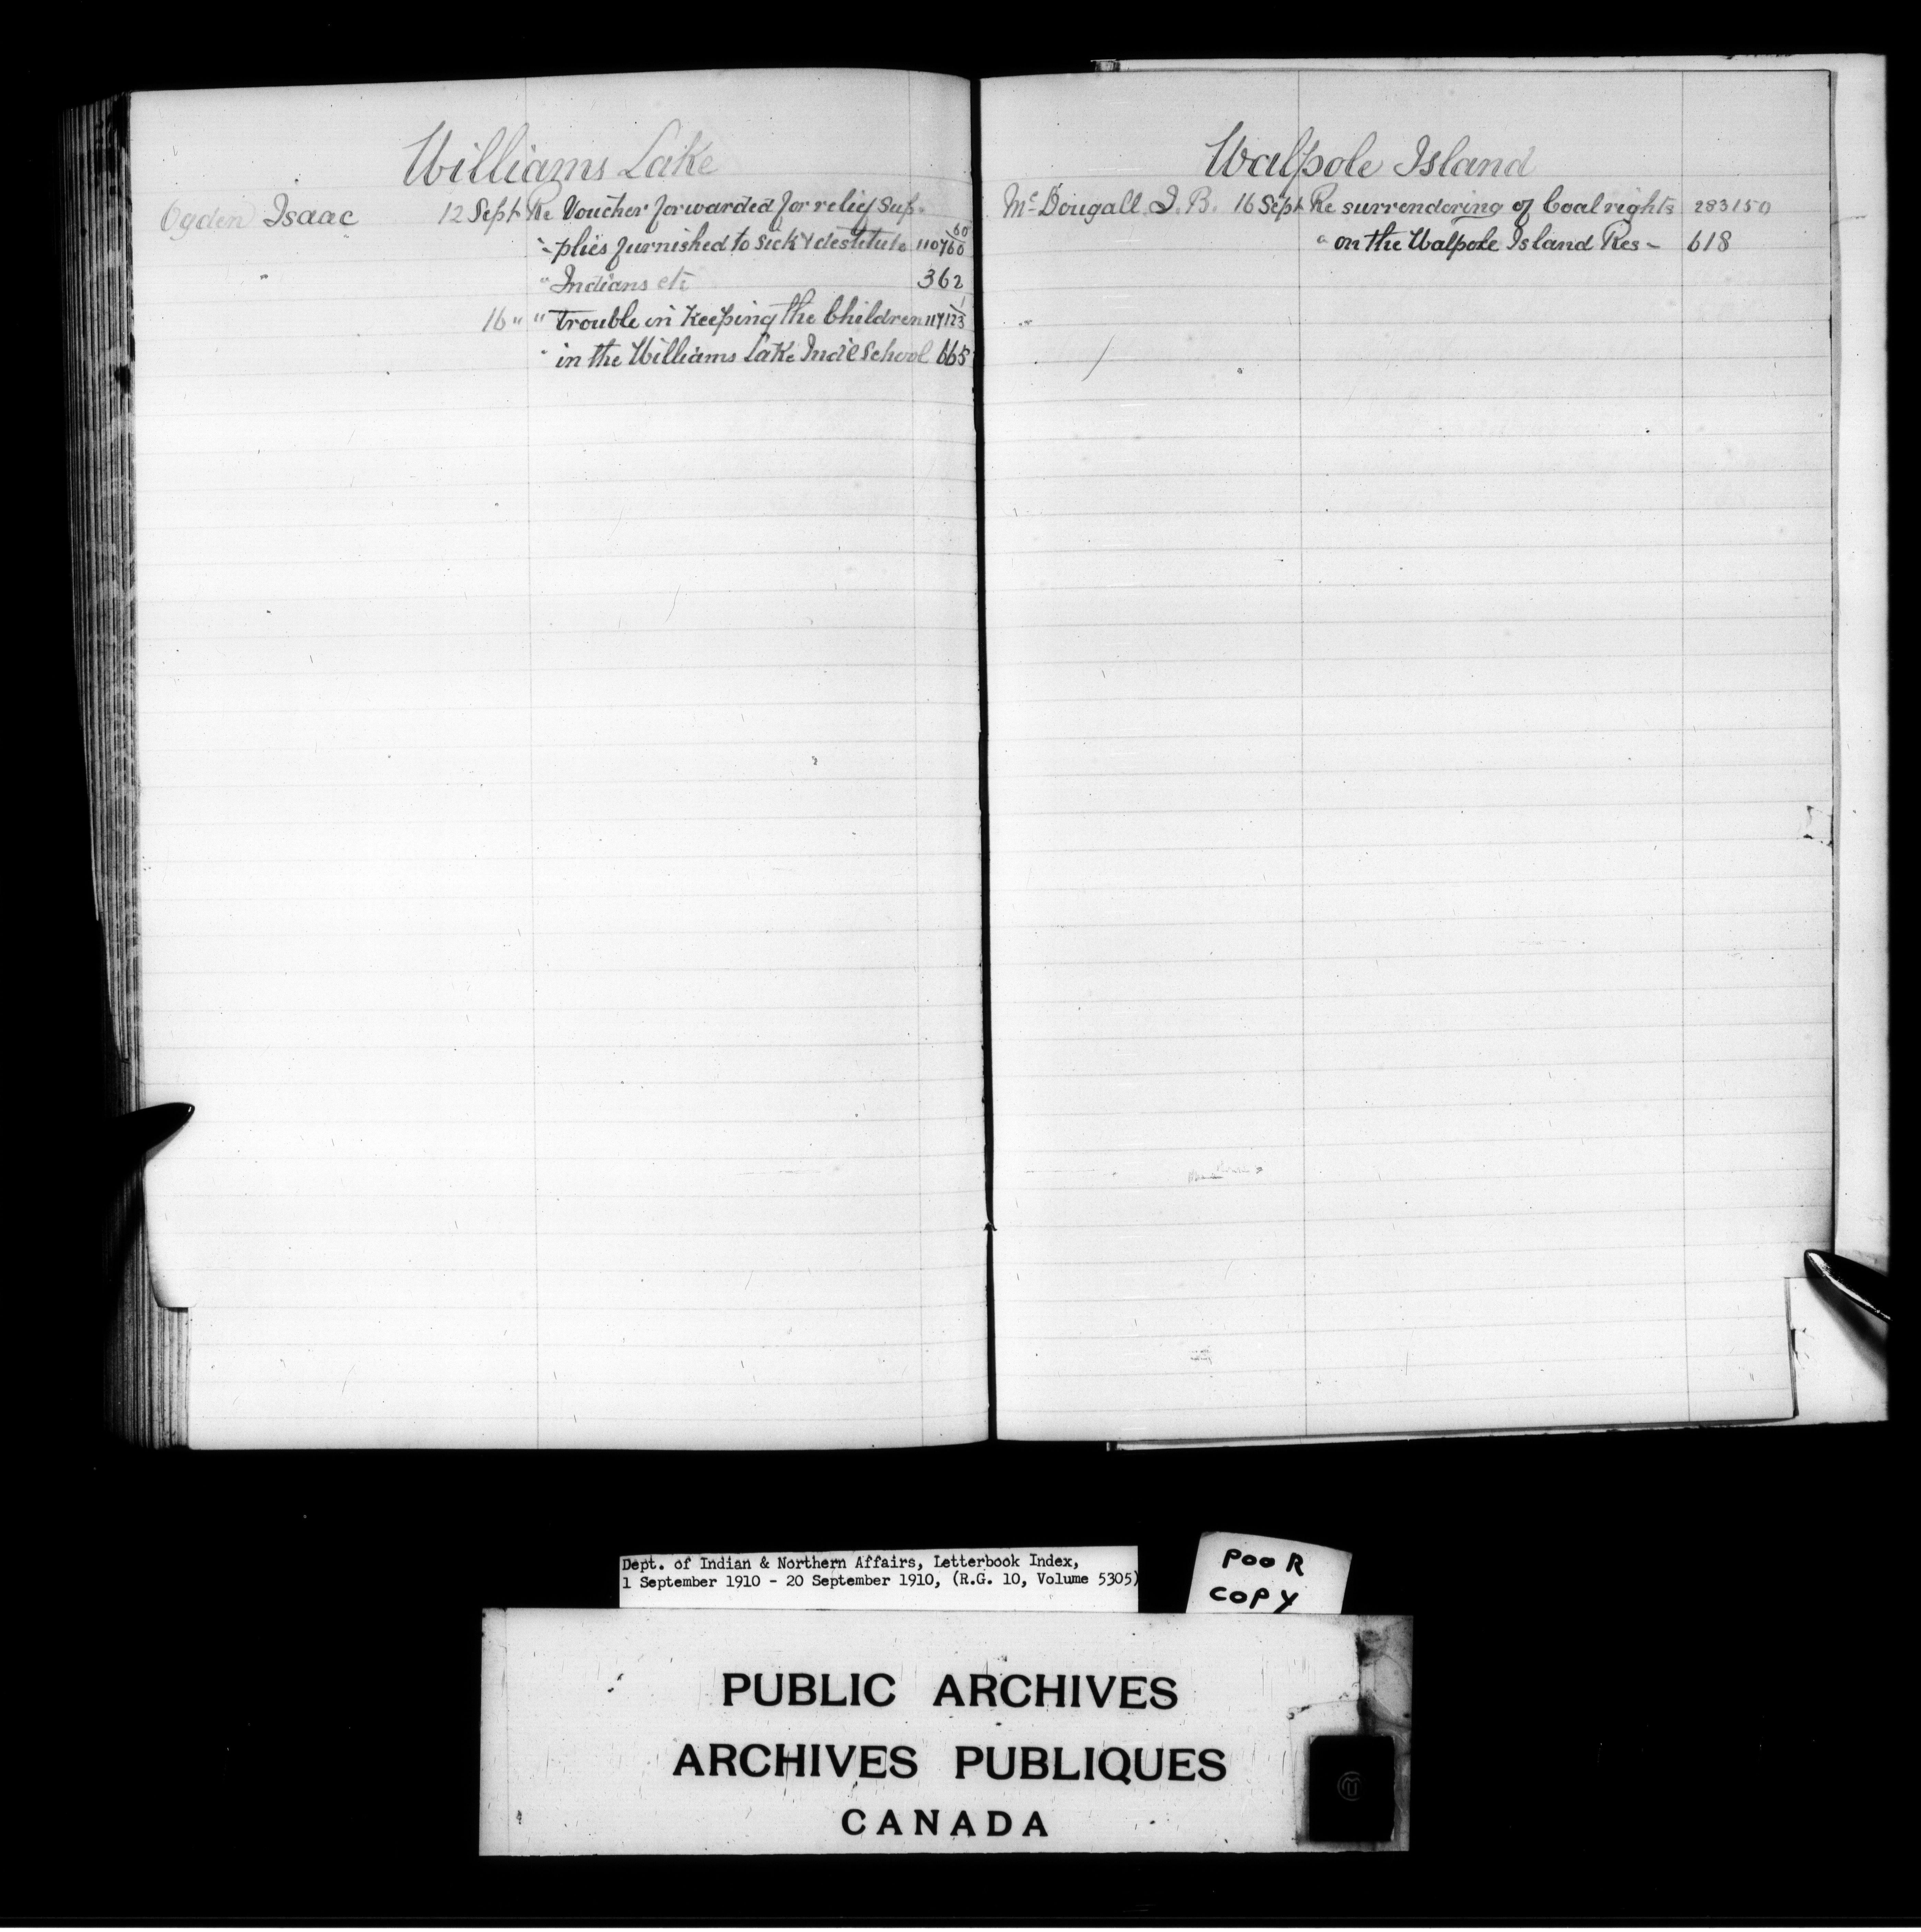 Williams Lake
Ogden Isaac 12 Sept Re Voucher forwarded for relief sup-
" plies furnished to sick & destitute
" " Indians etc 362
16 " " trouble in keeping the Children
" in the Williams Lake Ind'l School 665
Walpole Island
McDougall J. B. 16 Sept Re surrendering of Coal rights 283150
" on the Walpole Island Res- 618
Dept. of Indian & Northern Affairs, Letterbook Index,
1 September 1910 - 20 September 1910, (R.G. 10, Volume 5305)
POOR
COPY
PUBLIC ARCHIVES
ARCHIVES PUBLIQUES
CANADA